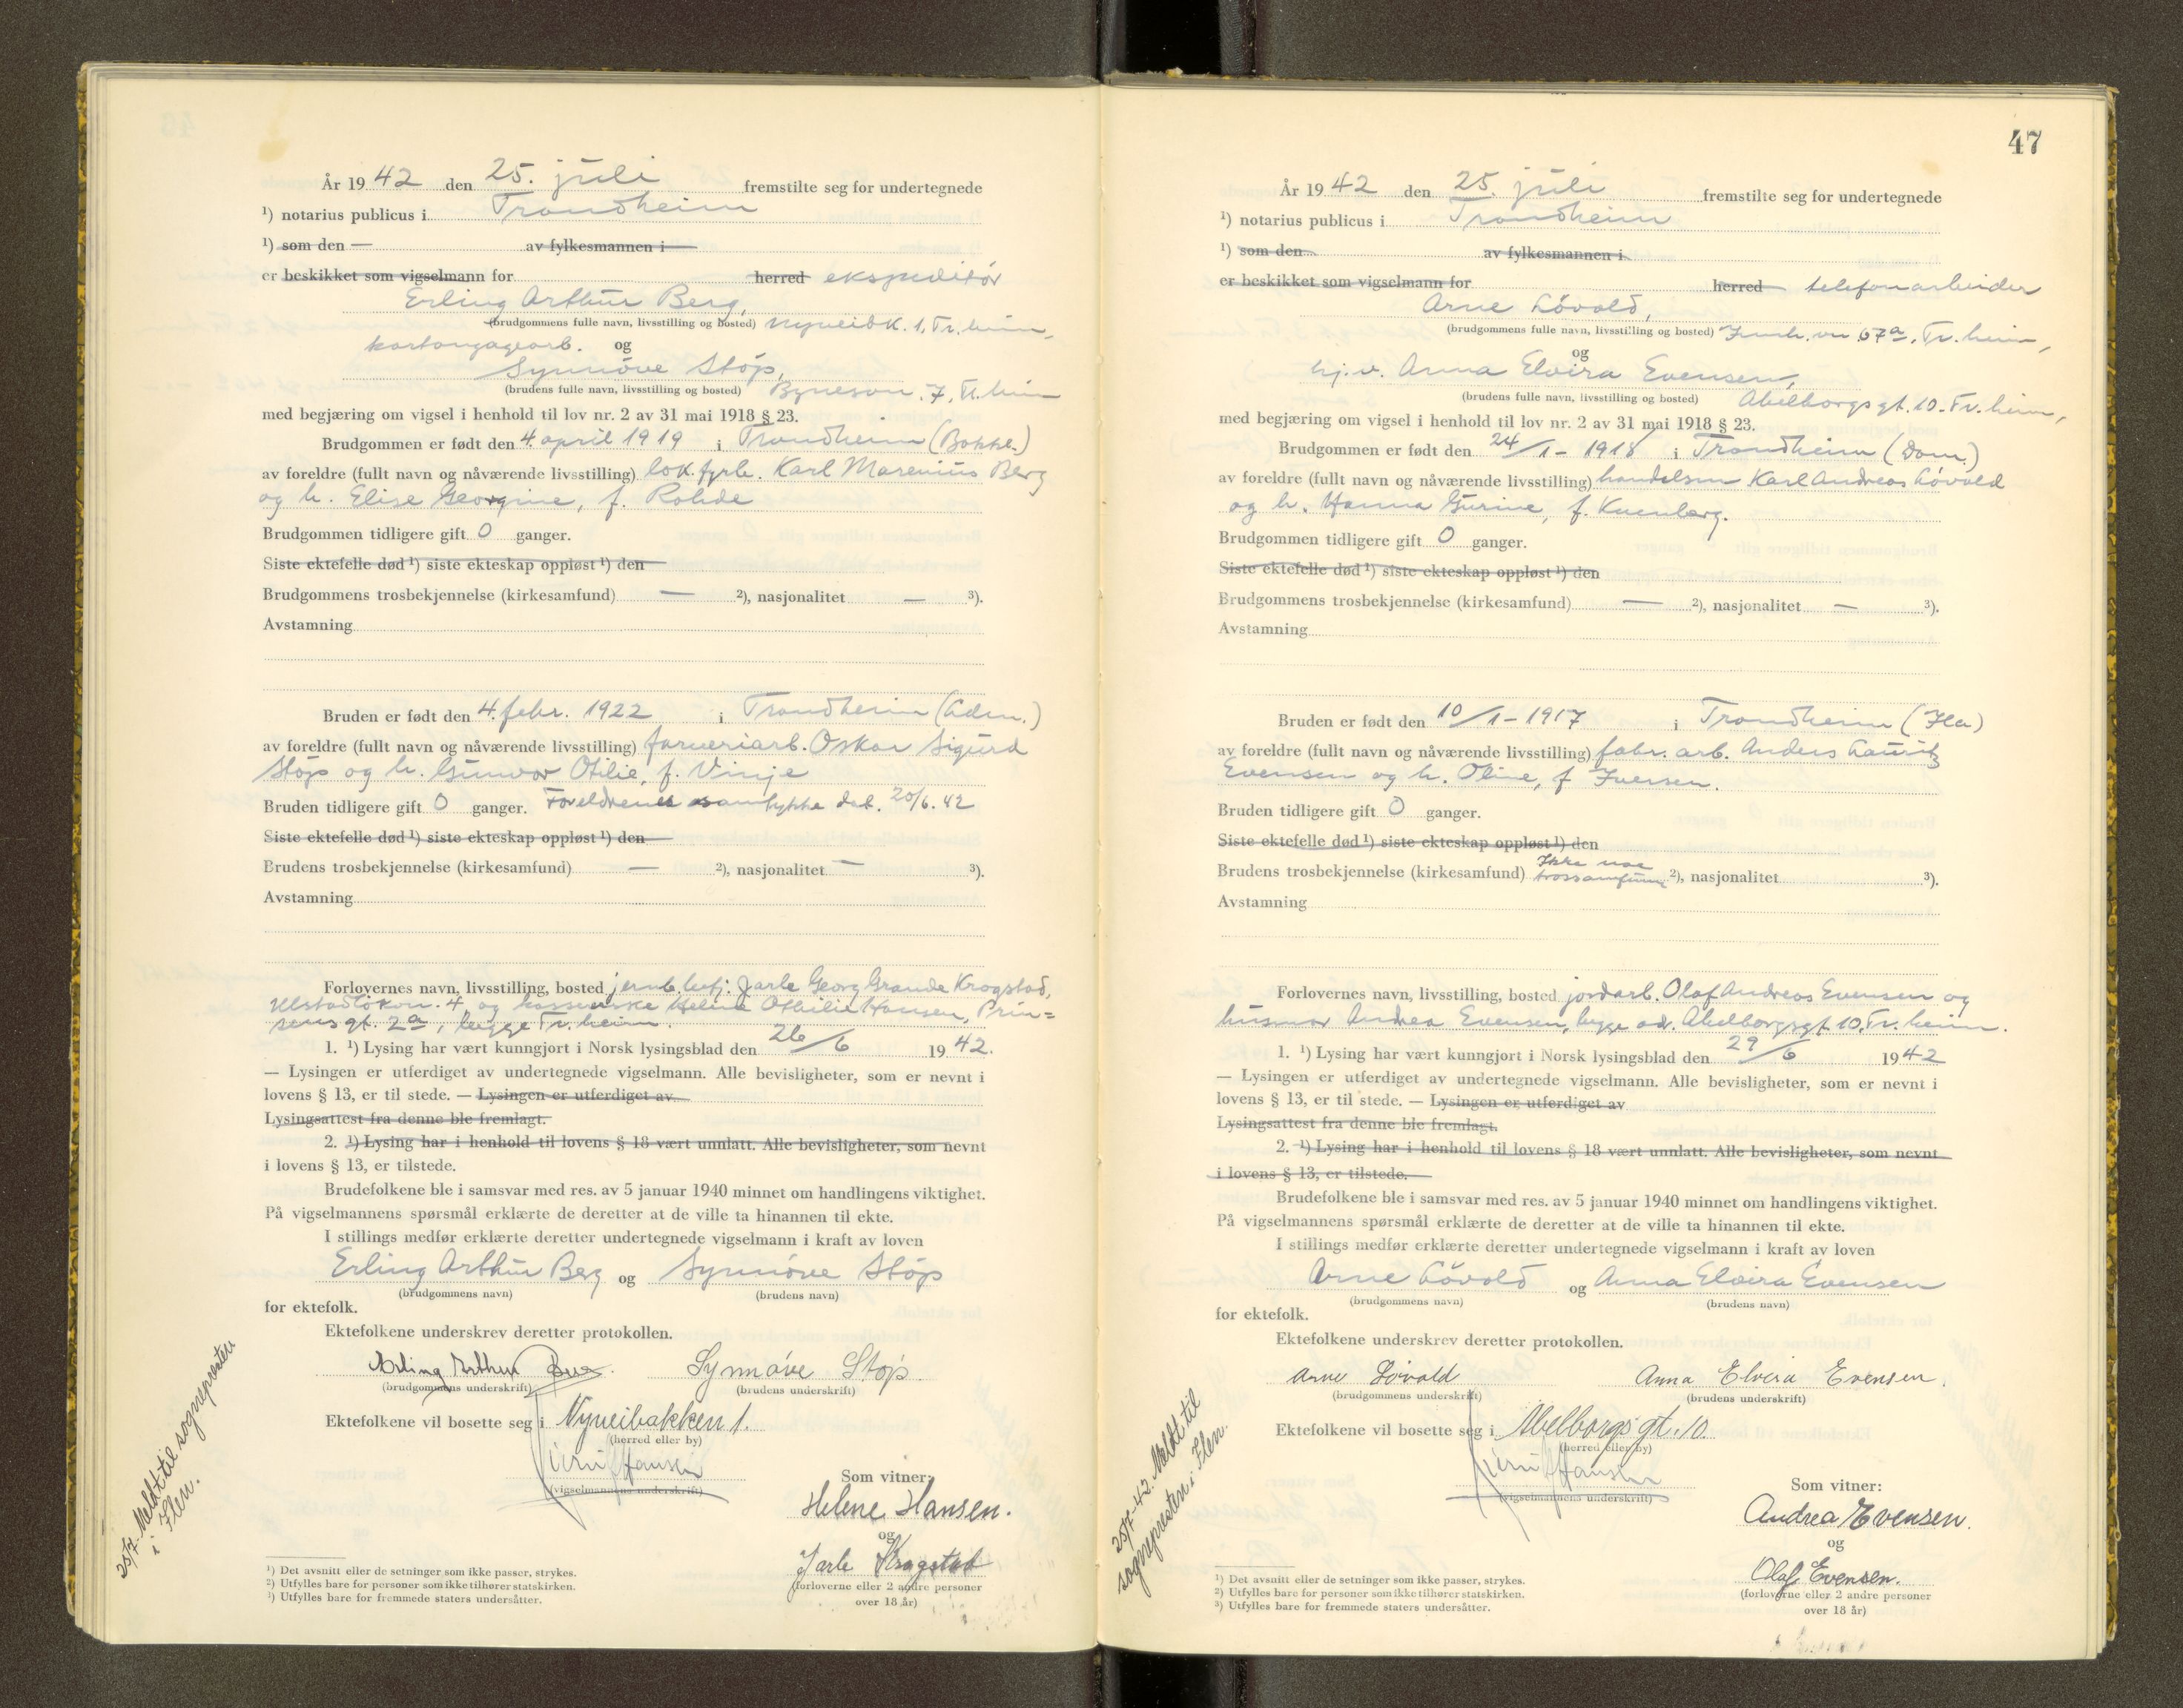 År 1942 den 25. juli fremstilte seg for undertegnede
¹) notarius publicus i Trondheim
¹) som den — av fylkesmannen i
er beskikket som vigselmann for herred ekspeditør
Erling Arthur Berg,
(brudgommens fulle navn, livsstilling og bosted) Nyveibk. 1, Tr.heim,
kartongagearb. og
Synnöve Stöp,
(brudens fulle navn, livsstilling og bosted) Bynesvn. 7, Tr.heim
med begjæring om vigsel i henhold til lov nr. 2 av 31 mai 1918 § 23.
Brudgommen er født den 4. april 1919 i Trondheim (Bakkl.)
av foreldre (fullt navn og nåværende livsstilling) lok.fyrb. Karl Marenius Berg
og h. Elise Georgine, f. Rohde
Brudgommen tidligere gift 0 ganger.
Siste ektefelle død ¹) siste ekteskap oppløst ¹) den
Brudgommens trosbekjennelse (kirkesamfund) — ²), nasjonalitet — ³).
Avstamning
Bruden er født den 4. febr. 1922 i Trondheim (Ladem.)
av foreldre (fullt navn og nåværende livsstilling) farveriarb. Oskar Sigurd
Stöp og h. Gunvor Otilie, f. Vinje
Bruden tidligere gift 0 ganger. Foreldrenes samtykke dat. 20/6. 42
Siste ektefelle død ¹) siste ekteskap oppløst ¹) den
Brudens trosbekjennelse (kirkesamfund) — ²), nasjonalitet — ³).
Avstamning
Forlovernes navn, livsstilling, bosted jernb.betj. Jarle Georg Grande Krogstad,
4 og Helene Otilie Hansen, Prin=
sensgt. 2a, begge Tr.heim.
1. ¹) Lysing har vært kunngjort i Norsk lysingsblad den 26/6 1942.
— Lysingen er utferdiget av undertegnede vigselmann. Alle bevisligheter, som er nevnt i
lovens § 13, er til stede. — Lysingen er utferdiget av
Lysingsattest fra denne ble fremlagt.
2. ¹) Lysing har i henhold til lovens § 18 vært unnlatt. Alle bevisligheter, som nevnt
i lovens § 13, er tilstede.
Brudefolkene ble i samsvar med res. av 5 januar 1940 minnet om handlingens viktighet.
På vigselmannens spørsmål erklærte de deretter at de ville ta hinannen til ekte.
I stillings medfør erklærte deretter undertegnede vigselmann i kraft av loven
Erling Arthur Berg og Synnöve Stöp
(brudgommens navn) (brudens navn)
for ektefolk.
Ektefolkene underskrev deretter protokollen.
Erling Arthur Berg. Synnöve Stöp.
(brudgommens underskrift) (brudens underskrift)
Ektefolkene vil bosette seg i Nyveibakken 1.
(herred eller by)
Hansen
(vigselmannens underskrift)
Som vitner:
Helene Hansen.
og
Jarle Krogstad
(forloverne eller 2 andre personer
over 18 år)
25/7. Meldt til sogneprosten
i Ilen.
¹) Det avsnitt eller de setninger som ikke passer, strykes.
²) Utfylles bare for personer som ikke tilhører statskirken.
³) Utfylles bare for fremmede staters undersåtter.
47
År 1942 den 25. juli fremstilte seg for undertegnede
¹) notarius publicus i Trondheim
¹) som den av fylkesmannen i
er beskikket som vigselmann for herred telefonarbeider
Arne Lövold,
(brudgommens fulle navn, livsstilling og bosted) 67a, Tr.heim,
og
hj.v. Anna Elvira Evensen,
(brudens fulle navn, livsstilling og bosted) Abelborgsgt. 10. Tr.heim,
med begjæring om vigsel i henhold til lov nr. 2 av 31 mai 1918 § 23.
Brudgommen er født den 24/1 - 1918 i Trondheim (Dom.)
av foreldre (fullt navn og nåværende livsstilling) handelsm Karl Andreas Lövold
og h. Hanna Gurine, f. Kuenberg.
Brudgommen tidligere gift 0 ganger.
Siste ektefelle død ¹) siste ekteskap oppløst ¹) den
Brudgommens trosbekjennelse (kirkesamfund) — ²), nasjonalitet — ³).
Avstamning
Bruden er født den 10/1 - 1917 i Trondheim (Ila)
av foreldre (fullt navn og nåværende livsstilling) fabr. arb. Anders Lauritz
Evensen og h. Oline, f Iversen.
Bruden tidligere gift 0 ganger.
Siste ektefelle død ¹) siste ekteskap oppløst ¹) den
Brudens trosbekjennelse (kirkesamfund) Ikke noe trossamfunn ²), nasjonalitet ³).
Avstamning
Forlovernes navn, livsstilling, bosted jordarb. Olaf Andreas Evensen og
husmor Andrea Evensen, begge adr. Abelborgsgt. 10. Tr.heim.
1. ¹) Lysing har vært kunngjort i Norsk lysingsblad den 29/6 1942
— Lysingen er utferdiget av undertegnede vigselmann. Alle bevisligheter, som er nevnt i
lovens § 13, er til stede. — Lysingen er utferdiget av
Lysingsattest fra denne ble fremlagt.
2. ¹) Lysing har i henhold til lovens § 18 vært unnlatt. Alle bevisligheter, som nevnt
i lovens § 13, er tilstede.
Brudefolkene ble i samsvar med res. av 5 januar 1940 minnet om handlingens viktighet.
På vigselmannens spørsmål erklærte de deretter at de ville ta hinannen til ekte.
I stillings medfør erklærte deretter undertegnede vigselmann i kraft av loven
Arne Lövold og Anna Elvira Evensen
(brudgommens navn) (brudens navn)
for ektefolk.
Ektefolkene underskrev deretter protokollen.
Arne Lövold Anna Elvira Evensen.
(brudgommens underskrift) (brudens underskrift)
Ektefolkene vil bosette seg i Abelborgs gt. 10.
(herred eller by)
Hansen
(vigselmannens underskrift)
Som vitner:
Andrea Evensen.
og
Olaf Evensen.
(forloverne eller 2 andre personer
over 18 år)
25/7-42. Meldt til
sognepresten i Ilen.
¹) Det avsnitt eller de setninger som ikke passer, strykes.
²) Utfylles bare for personer som ikke tilhører statskirken.
³) Utfylles bare for fremmede staters undersåtter.